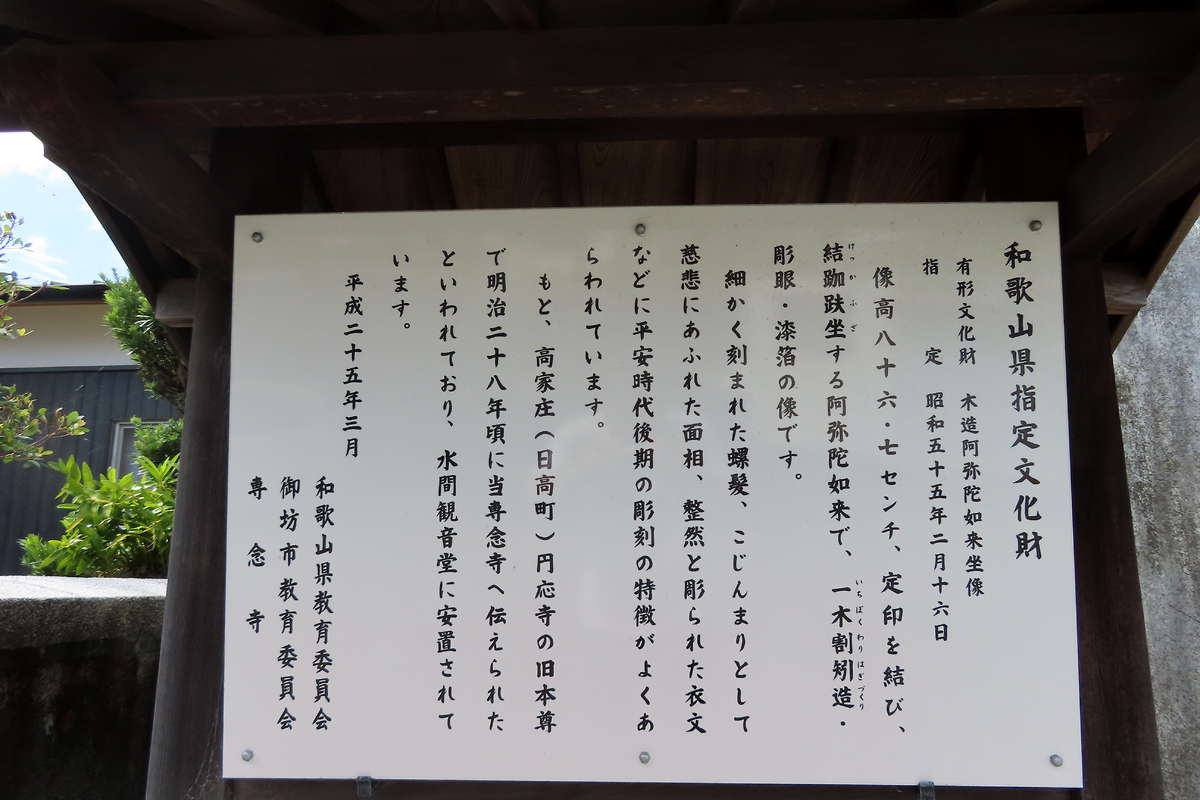 和歌山県指定文化財
有形文化財 木造阿弥陀如来坐像
指定 昭和五十五年二月十六日
像高八十六・七センチ、定印を結び、
結跏趺坐する阿弥陀如来で、一木割矧造・
けっかふざ
いちぼくわりはぎづくり
彫眼・漆箔の像です。
細かく刻まれた螺髪、こじんまりとして
慈悲にあふれた面相、整然と彫られた衣文
などに平安時代後期の彫刻の特徴がよくあ
らわれています。
もと、高家庄(日高町)円応寺の旧本尊
で明治二十八年頃に当専念寺へ伝えられた
といわれており、水間観音堂に安置されて
います。
平成二十五年三月
和歌山県教育委員会
御坊市教育委員会
専念寺